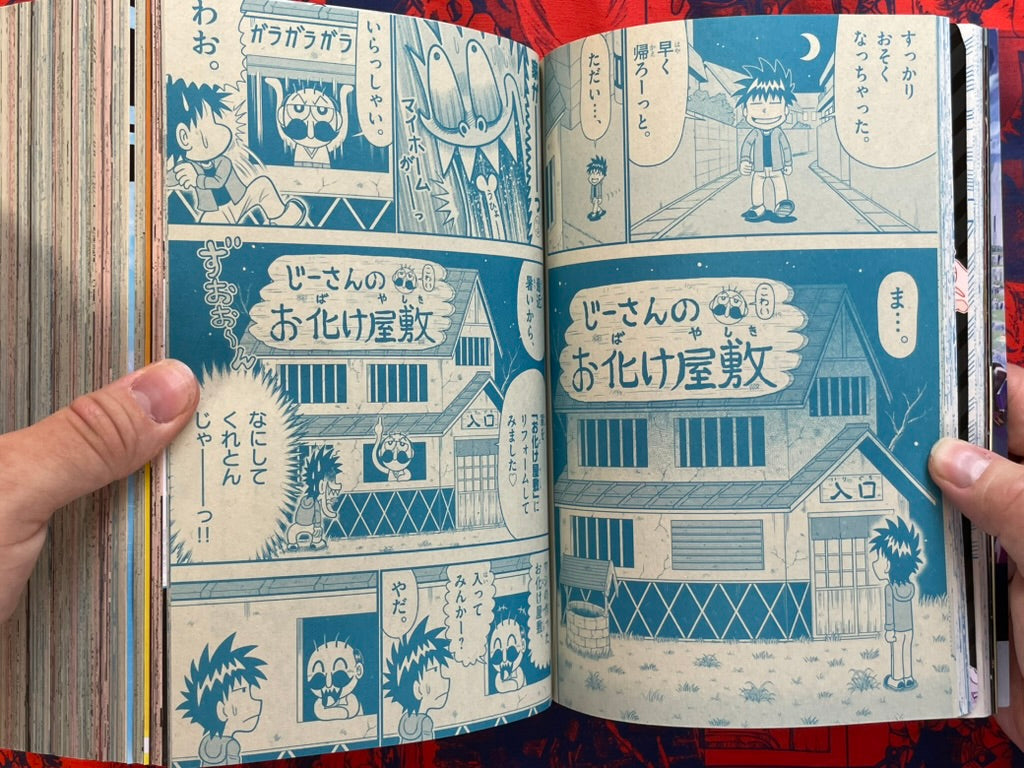 すっかり
おそく
なっちゃった。
早く
はや
帰ろーっと。
かえ
ただい…、
ま…。
じーさんの
こわい
お化け屋敷
ばやしき
入口
いりぐち
マイホがーム
っ
うひょ
いらっしゃい。
ガラガラガラ
わお。
暑いから、
「お化け屋敷」に
リフォームして
みました♡
じーさんの
こわい
お化け屋敷
ばやしき
入口
ずおぉ〜ん
なにして
くれとん
じゃーーっ!!
お化け屋敷、
入って
はい
みんかー?
やだ。